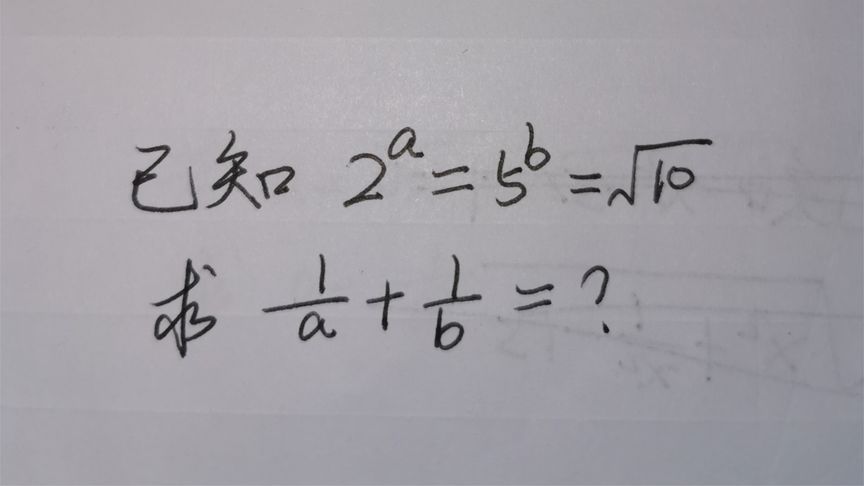 已知 2^a = 5^b = √10
求 1/a + 1/b = ?